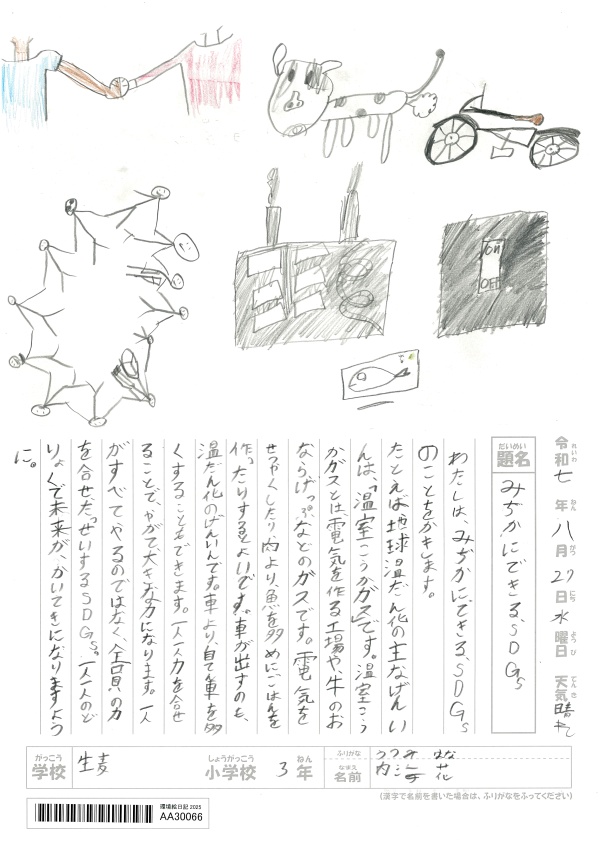 ON
OFF
令和七年八月27日水曜日 天気晴れ
れいわ ねん がつ にち ようび てんき
だいめい
題名 みぢかにできる、SDGs
わたしは、みぢかにできる、SDGs
のことをかきします。
たとえば地球温だん化の主なげんい
んは、「温室こうかガス」です。温室こう
かガスとは電気を作る工場や、牛のお
ならげっぷなどのガスです。電気を
せつやくしたり、肉より、魚を多めにごはんを
作ったりするとよいです。車が出すのも、
温だん化のげんいんです。車より、自てん車を多
くすることもできます。一人一人力を合せ
ることで、やがて大きな力になります。一人
がすべてやるのではなく、全員の力
を合せ、たっせいするSDGs。一人一人のど
りょくで未来が、かいてきになりますよう
に。
がっこう しょうがっこう ねん ふりがな うつみ はな
学校 生麦 小学校 3年 なまえ 名前 内海 花
(漢字で名前を書いた場合は、ふりがなをふってください)
環境絵日記 2025
AA30066